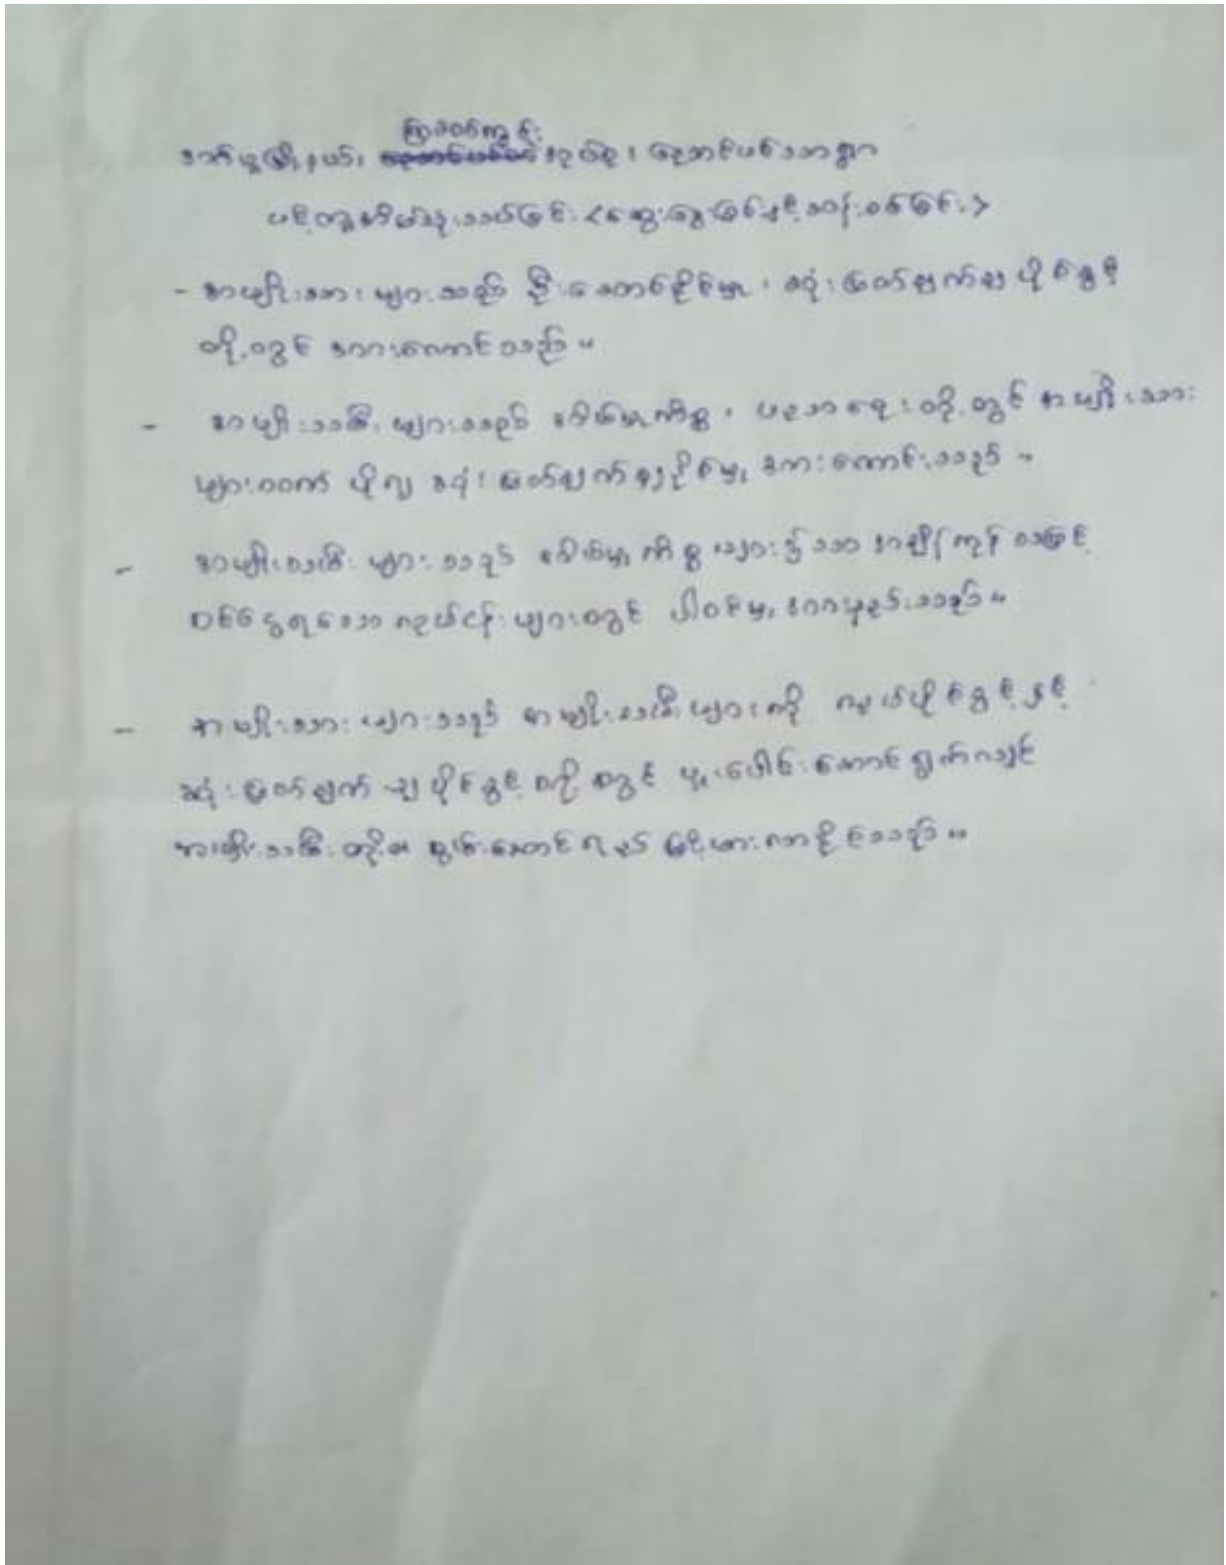 ကြာခတ်ကွင်း
ဒက်ယူမြို့နယ်၊ အုပ်စု၊ ညောင်ပင်သာရွာ
(ဆွေးနွေးခြင်းနှင့်ဆန်းစစ်ခြင်း)
- အမျိုးသားများသည် ဦးဆောင်နိုင်မှု၊ ဆုံးဖြတ်ချက်ချပိုင်ခွင့်
တို့တွင် အားကောင်းသည်။
- အမျိုးသမီးများသည် အိမ်မှုကိစ္စ၊ ပညာရေးတို့တွင် အမျိုးသား
များထက် ပို၍ ဆုံးဖြတ်ချက်ချနိုင်မှု အားကောင်းသည်။
- အမျိုးသမီးများသည် အိမ်မှုကိစ္စများ၌သာ အချိန်ကုန်သဖြင့်
ဝင်ငွေရသော လုပ်ငန်းများတွင် ပါဝင်မှု အားနည်းသည်။
- အမျိုးသားများသည် အမျိုးသမီးများကို လုပ်ပိုင်ခွင့်နှင့်
ဆုံးဖြတ်ချက်ချပိုင်ခွင့်တို့တွင် ပူးပေါင်းဆောင်ရွက်လျှင်
အမျိုးသမီးတို့၏ စွမ်းဆောင်ရည် မြင့်မားလာနိုင်သည်။